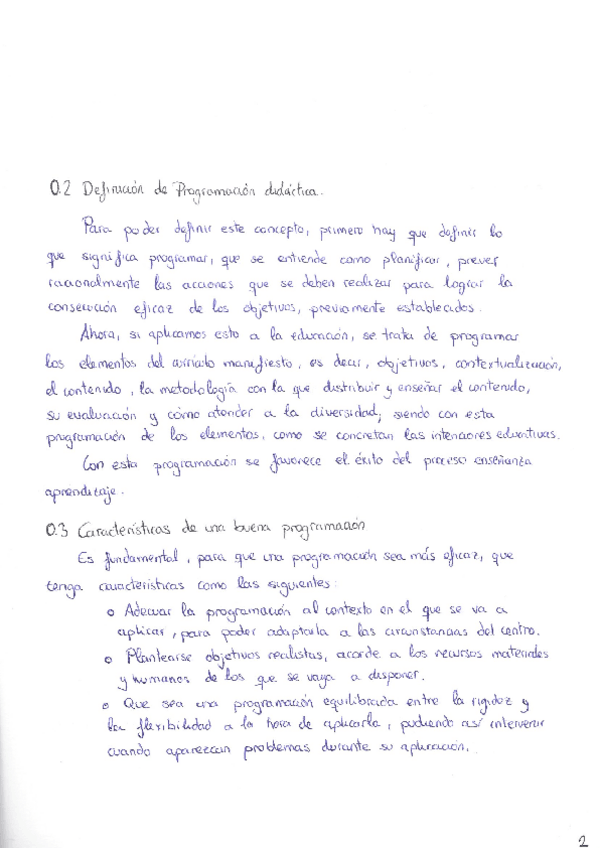 0.2 Definición de Programación didáctica.
Para poder definir este concepto, primero hay que definir lo
que significa programar, que se entiende como planificar, prever
racionalmente las acciones que se deben realizar para lograr la
consecución eficaz de los objetivos, previamente establecidos.
Ahora, si aplicamos esto a la educación, se trata de programar
los elementos del currículo manifiesto, es decir, objetivos, contextualización,
el contenido, la metodología con la que distribuir y enseñar el contenido,
su evaluación y cómo atender a la diversidad; siendo con esta
programación de los elementos, como se concretan las intenciones educativas.
Con esta programación se favorece el éxito del proceso enseñanza
aprendizaje.
0.3 Características de una buena programación
Es fundamental, para que una programación sea más eficaz, que
tenga características como las siguientes:
o Adecuar la programación al contexto en el que se va a
aplicar, para poder adaptarla a las circunstancias del centro.
o Plantearse objetivos realistas, acorde a los recursos materiales
y humanos de los que se vaya a disponer.
o Que sea una programación equilibrada entre la rigidez y
la flexibilidad a la hora de aplicarla, pudiendo así intervenir
cuando aparezcan problemas durante su aplicación.
2